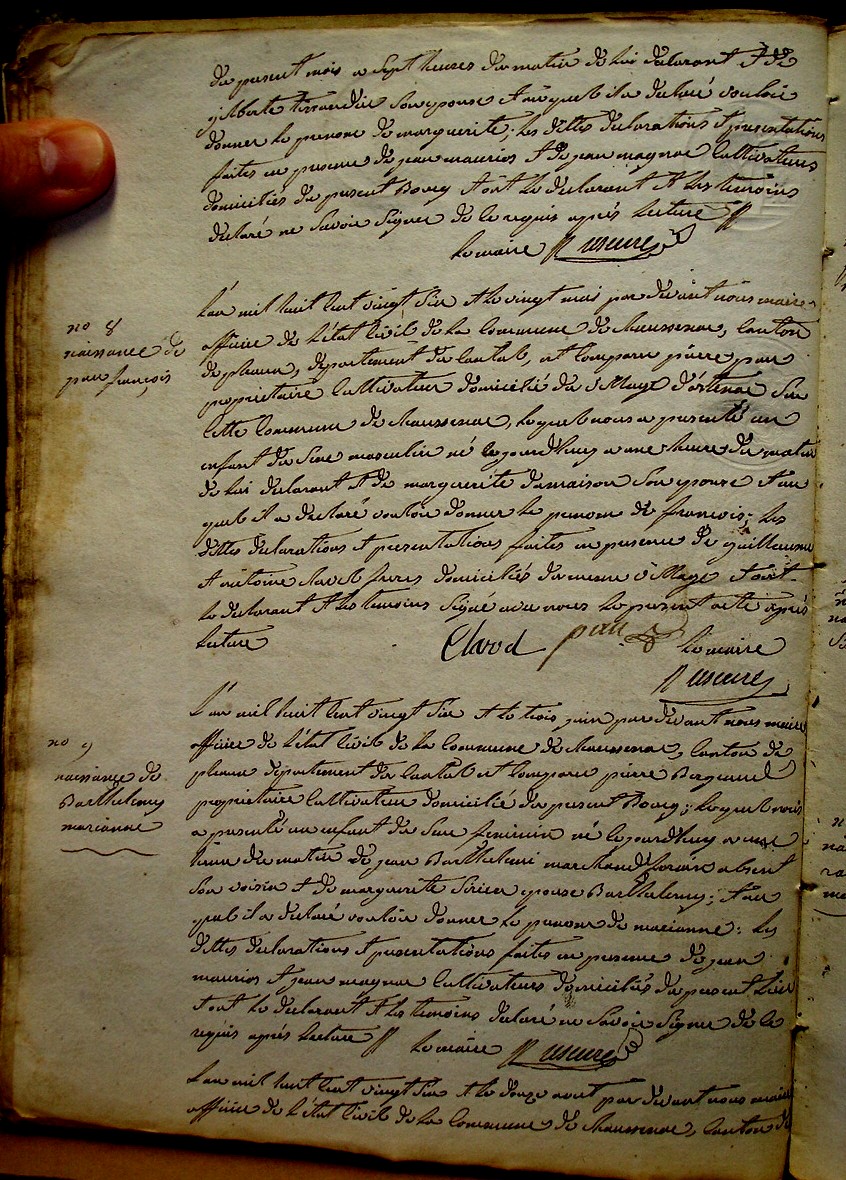 du present mois a Sept heures du matin de lui declarant et de
gilberte son epouse et auquel il a declaré vouloir
donner le prenom de marguerite; les dittes declarations et presentations
faites en presence de jean maurios et de jean magnac Cultivateurs
domiciliés du present Bourg et ont le declarant et les temoins
declaré ne Savoir Signer de ce requis après lecture
le maire
L'an mil huit cent vingt Six et le vingt mai par devant nous maire
no 8
naissance de
françois
officier de l'état Civil de la Commune de Chaussenac, Canton
de pleaux, departement du Cantal, est Comparu pierre
propriétaire Cultivateur domicilié du village d'ostenac Sur
cette Commune de Chaussenac, lequel nous a presenté un
enfant du Sexe masculin né cejourdhuy a une heure du matin
de lui declarant et de marguerite damaison Son epouse et au
quel il a declaré vouloir donner le prenom de françois; les
dittes declarations et presentations faites en presence de guillaume
et antoine freres domiciliés du meme village et ont
le declarant et les temoins Signé avec nous le present acte après
lecture
le maire
L'an mil huit cent vingt Six et le trois juin par devant nous maire
no 9
naissance de
Barthelemy
marianne
officier de l'état Civil de la Commune de Chaussenac, Canton de
pleaux departement du Cantal est Comparu pierre
propriétaire Cultivateur domicilié du present Bourg; lequel nous
a presenté un enfant du Sexe feminin né cejourdhuy a une
heure du matin de jean Barthelemi marchand forain absent
Son voisin et de marguerite epouse Barthelemy; et au
quel il a declaré vouloir donner le prenom de marianne: les
dittes declarations et presentations faites en presence de jean
maurios et jean magnac Cultivateurs domiciliés du present lieu
et ont le declarant et les temoins declaré ne Savoir Signer de ce
requis après lecture le maire
L'an mil huit cent vingt Six et le douze aout par devant nous maire
officier de l'état Civil de la Commune de Chaussenac, Canton de